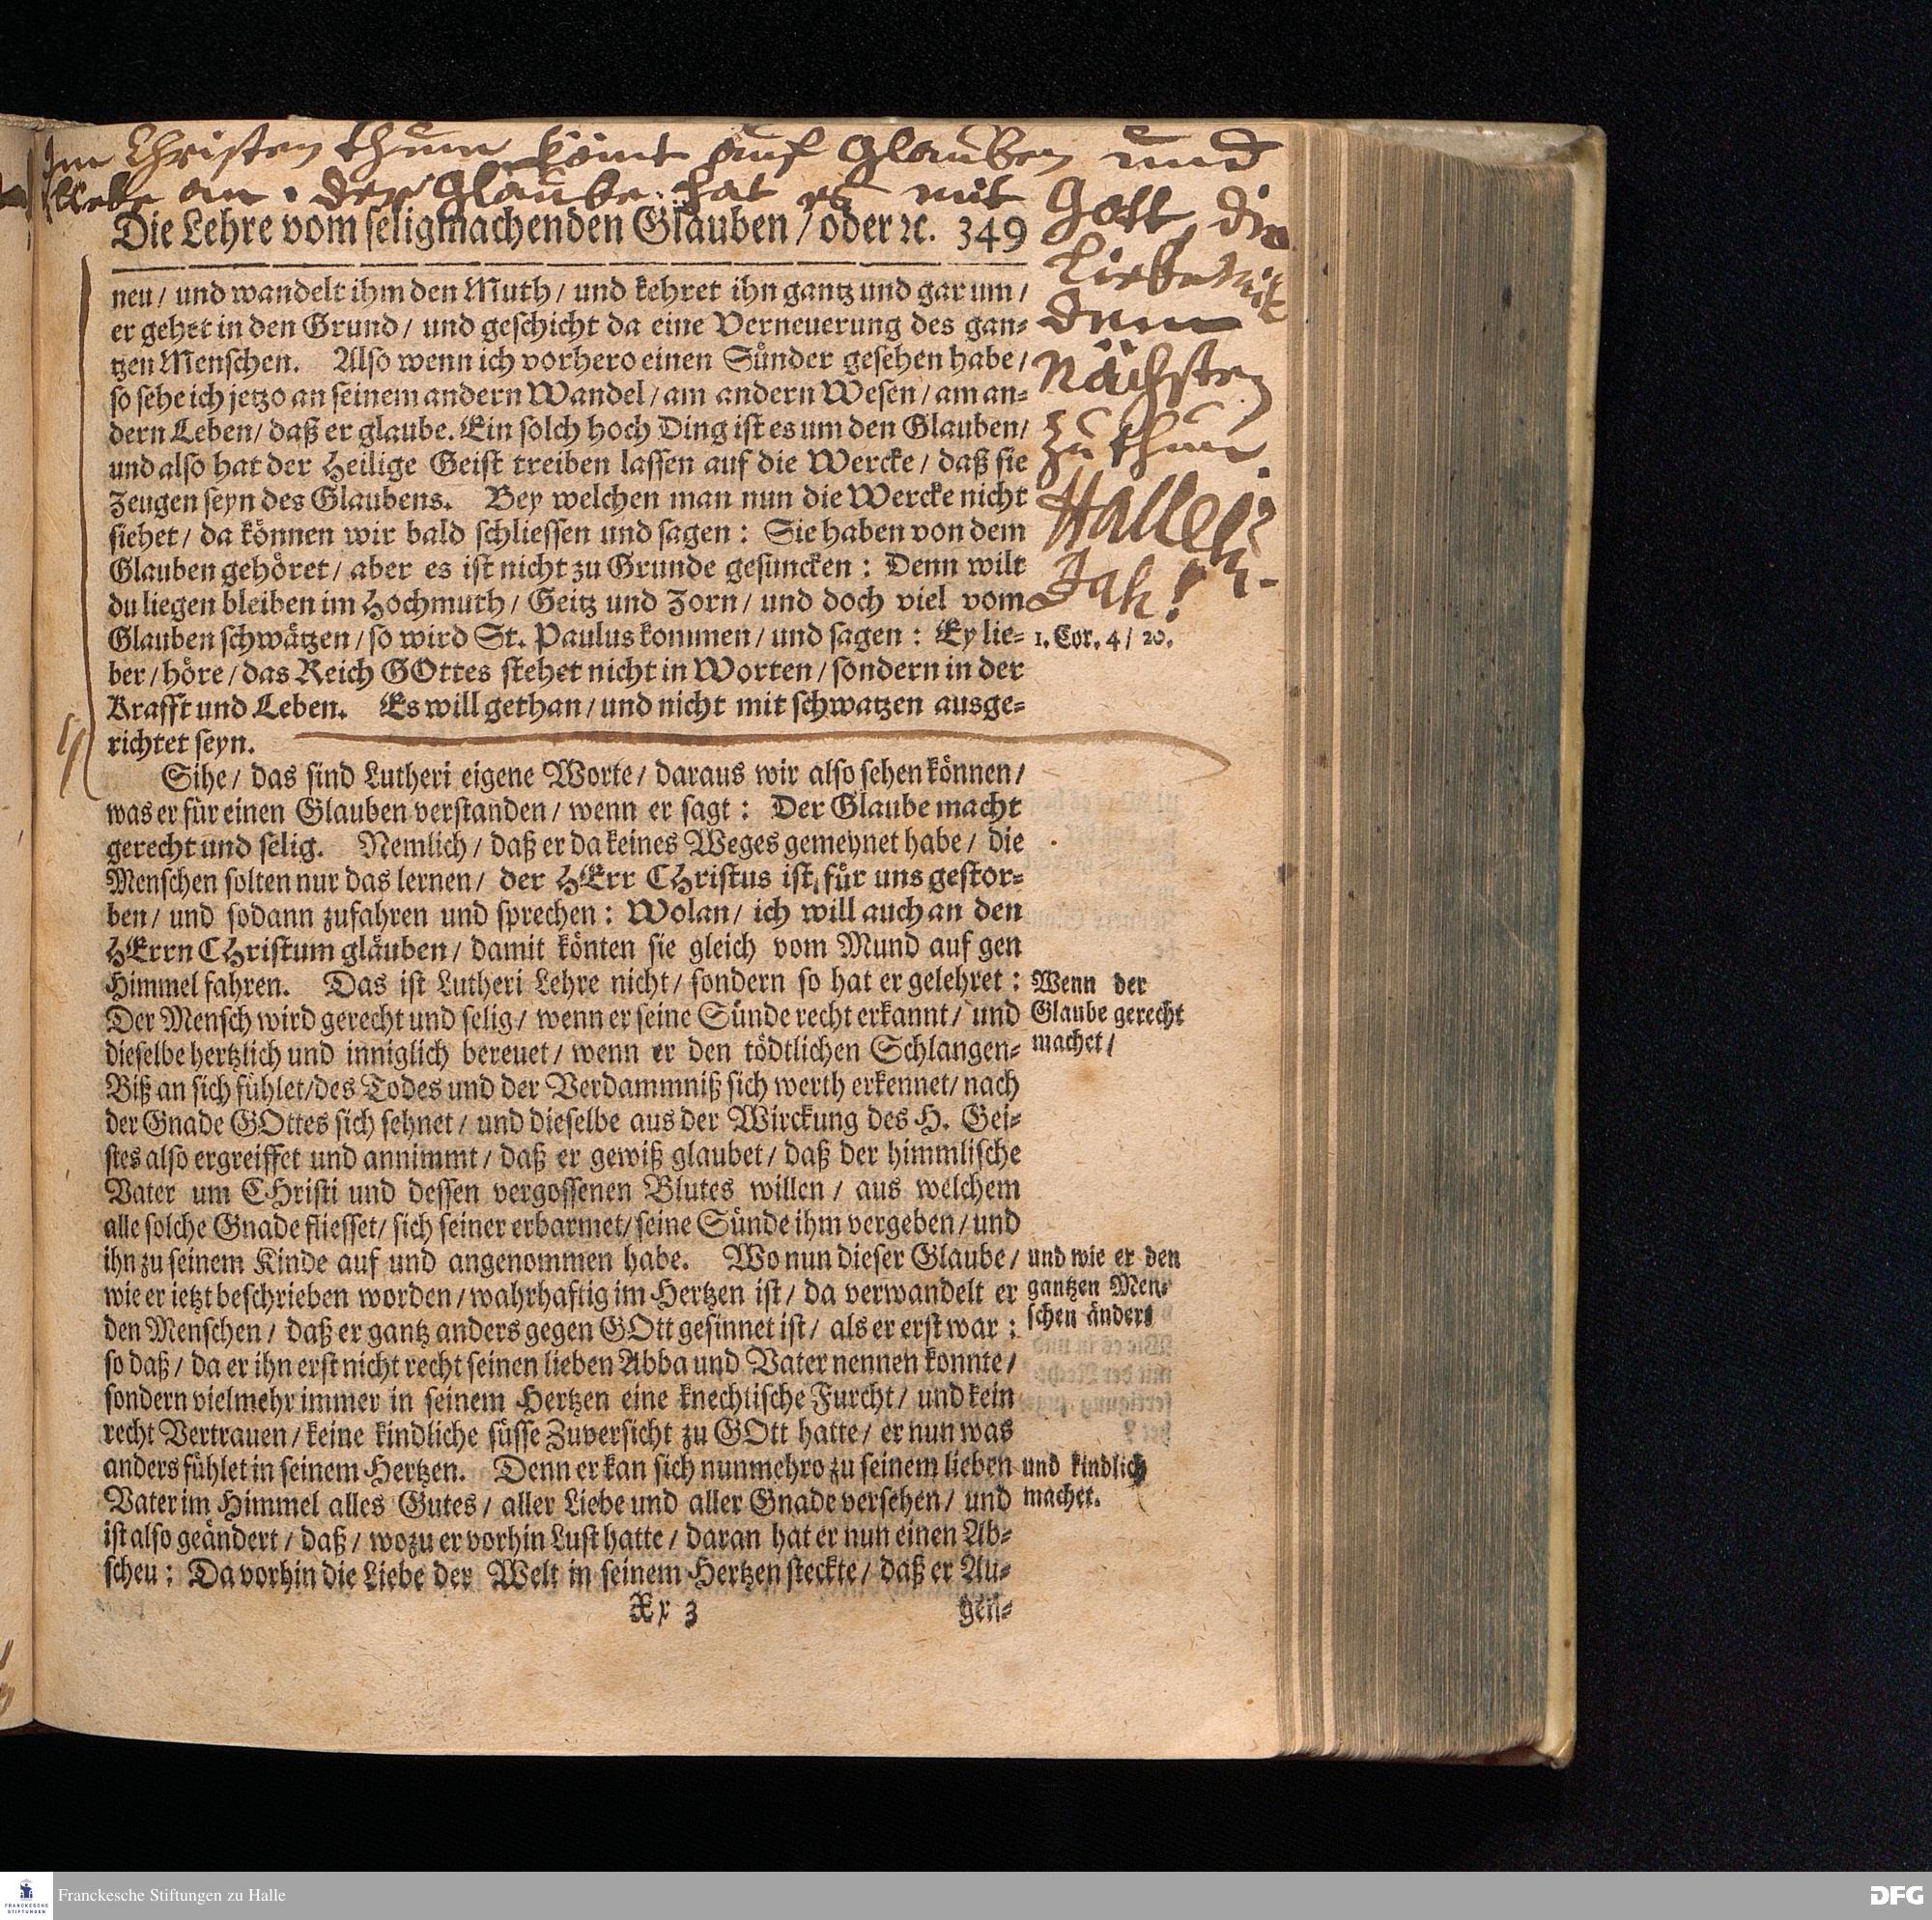 Im Christenthum kömt auf Glauben und
liebe an. der Glaube hat es mit
Gott, die
Liebe mit
dem
Nächsten
zu thun.
Hallelu-
Jah!
Die Lehre vom seligmachenden Glauben / oder ꝛc. 349
neu / und wandelt ihm den Muth / und kehret ihn gantz und gar um /
er gehet in den Grund / und geschicht da eine Verneuerung des gan-
tzen Menschen. Also wenn ich vorhero einen Sünder gesehen habe /
so sehe ich jetzo an seinem andern Wandel / am andern Wesen / am an-
dern Leben / daß er glaube. Ein solch hoch Ding ist es um den Glauben /
und also hat der Heilige Geist treiben lassen auf die Wercke / daß sie
Zeugen seyn des Glaubens. Bey welchen man nun die Wercke nicht
siehet / da können wir bald schliessen und sagen : Sie haben von dem
Glauben gehöret / aber es ist nicht zu Grunde gesuncken : Denn wilt
du liegen bleiben im Hochmuth / Geitz und Zorn / und doch viel vom
Glauben schwätzen / so wird St. Paulus kommen / und sagen : Ey lie-
1. Cor. 4 / 20.
ber / höre / das Reich GOttes stehet nicht in Worten / sondern in der
Krafft und Leben. Es will gethan / und nicht mit schwatzen ausge-
richtet seyn.
Sihe / das sind Lutheri eigene Worte / daraus wir also sehen können /
was er für einen Glauben verstanden / wenn er sagt : Der Glaube macht
gerecht und selig. Nemlich / daß er da keines Weges gemeynet habe / die
Menschen solten nur das lernen / der HErr CHristus ist für uns gestor-
ben / und sodann zufahren und sprechen : Wolan / ich will auch an den
HErrn CHristum gläuben / damit könten sie gleich vom Mund auf gen
Himmel fahren. Das ist Lutheri Lehre nicht / sondern so hat er gelehret :
Der Mensch wird gerecht und selig / wenn er seine Sünde recht erkannt / und
dieselbe hertzlich und inniglich bereuet / wenn er den tödtlichen Schlangen-
Wenn der
Glaube gerecht
machet /
Biß an sich fühlet / des Todes und der Verdammniß sich werth erkennet / nach
der Gnade GOttes sich sehnet / und dieselbe aus der Wirckung des H. Gei-
stes also ergreiffet und annimmt / daß er gewiß glaubet / daß der himmlische
Vater um CHristi und dessen vergossenen Blutes willen / aus welchem
alle solche Gnade fliesset / sich seiner erbarmet / seine Sünde ihm vergeben / und
ihn zu seinem Kinde auf und angenommen habe. Wo nun dieser Glaube /
wie er ietzt beschrieben worden / wahrhaftig im Hertzen ist / da verwandelt er
den Menschen / daß er gantz anders gegen GOtt gesinnet ist / als er erst war :
und wie er den
gantzen Men-
schen ändert
so daß / da er ihn erst nicht recht seinen lieben Abba und Vater nennen konnte /
sondern vielmehr immer in seinem Hertzen eine knechtische Furcht / und kein
recht Vertrauen / keine kindliche süsse Zuversicht zu GOtt hatte / er nun was
anders fühlet in seinem Hertzen. Denn er kan sich nunmehro zu seinem lieben
Vater im Himmel alles Gutes / aller Liebe und aller Gnade versehen / und
und kindlich
machet.
ist also geändert / daß / wozu er vorhin Lust hatte / daran hat er nun einen Ab-
scheu : Da vorhin die Liebe der Welt in seinem Hertzen steckte / daß er Au-
Xx 3
gen-
FRANCKESCHE
STIFTUNGEN
Franckesche Stiftungen zu Halle
DFG